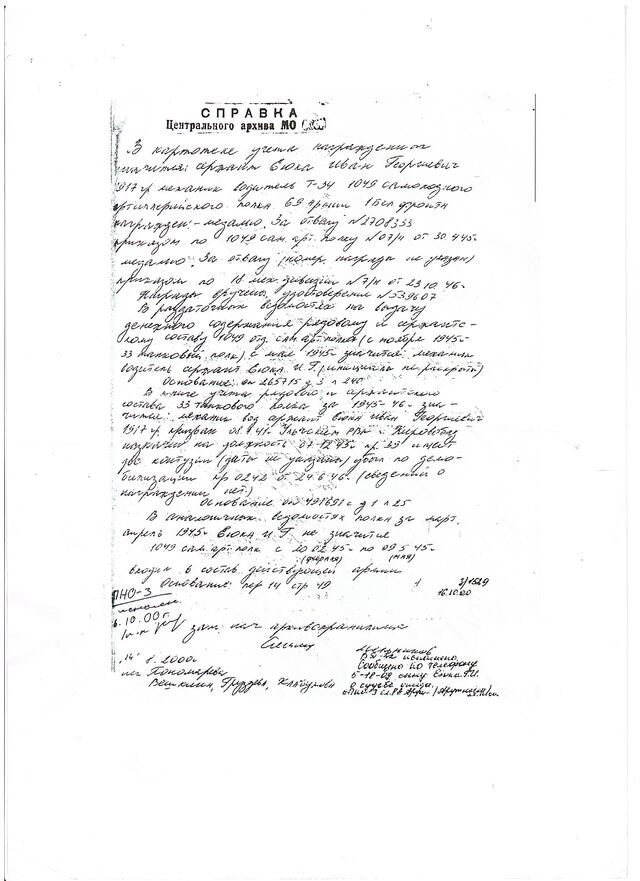 СПРАВКА
Центрального архива МО
В картотеке учета награждений
значится: сержант Сюка Иван Георгиевич
1917 г.р механик водитель Т-34 1049 самоходного
артиллерийского полка 69 армии 1 Бел фронта
награжден: - медалью „За отвагу N2708333
приказом по 1049 сам. арт. полку N07/н от 30.4.45г.
медалью „За отвагу (номер награды не указан)
приказом по 18 мех. дивизии N7/н от 23.10.46г.
Награды вручены, удостоверение N539607
В раздаточных ведомостях на выдачу
денежного содержания рядовому и сержантс-
кому составу 1049 отд. сам. арт. полка (с ноября 1945г.
33 танковый полк) с мая 1945г. значится: механик
водитель сержант Сюка И.Г. (инициалы не раскрыты)
Основание: оп 265715 д 3 л 240
В книге учета рядового и сержантского
состава 33 танкового полка за 1945-46г. зна-
чится: механик вод сержант Сюка Иван Георгиевич
1917 г.р призван 08.41г. РВК г.
назначен на должность 07.12.45г. пр 39 имеет
две контузии (даты не указаны) убыл по демо-
билизации пр 0242 от 24.6.46г. (сведений о
награждении нет)
Основание оп 491691с д 1 л 25
В аналогичных ведомостях полка за март,
апрель 1945г. Сюка И.Г. не значится
1049 сам. арт. полк с 20.02.45г. по 09.5.45г.
(февраля) (мая)
входил в состав действующей армии
Основание: пер 14 стр 49
1 3/1529
16.10.00
ПНО-3
10.00г.
зам. нач архивохранилища
„14" 8. 2000г.
исп Пономарева
исполнено.
Сообщено по телефону
5-18-09 сыну Сюка Г.И.
о судьбе отца.